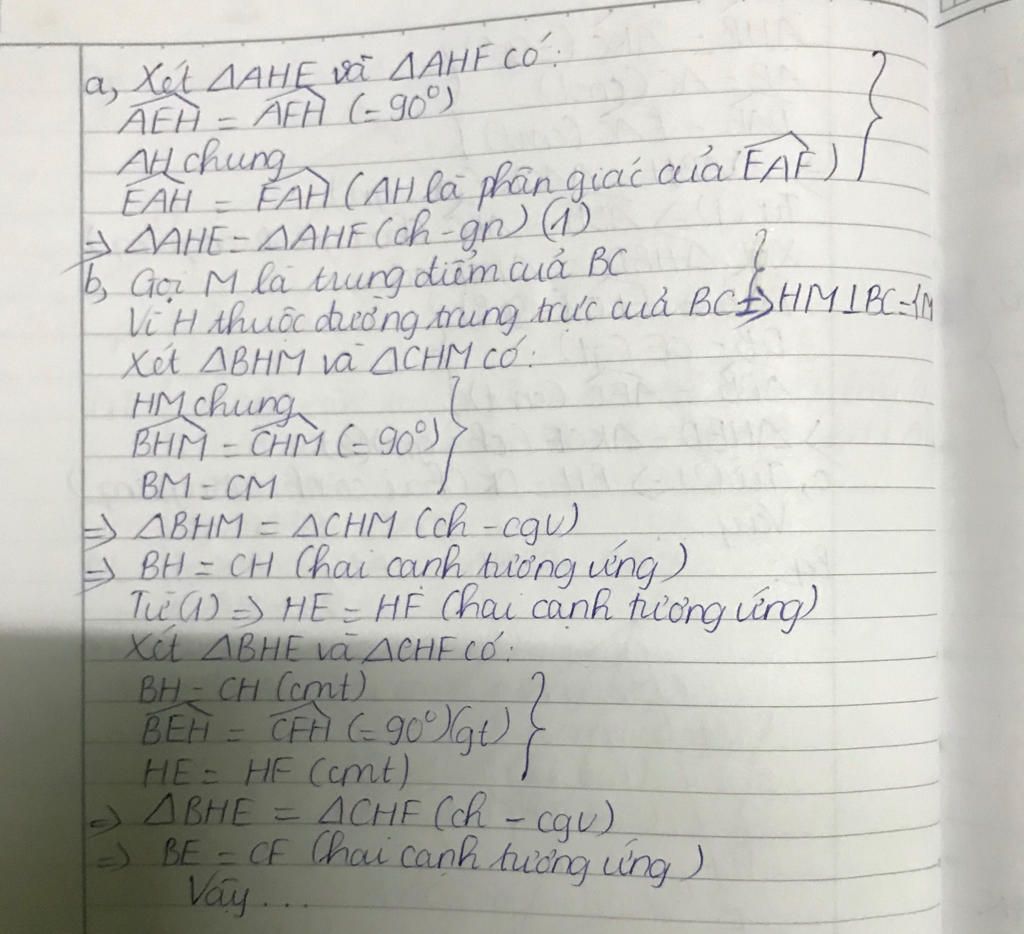 a, Xét △AHE và △AHF có:
AEH = AFH (= 90°)
AH chung
EAH = FAH (AH là phân giác của EAF)
=> △AHE = △AHF (ch - gn) (1)
b, Gọi M là trung điểm của BC
Vì H thuộc đường trung trực của BC => HM ⊥ BC = {M
Xét △BHM và △CHM có:
HM chung
BHM = CHM (= 90°)
BM = CM
=> △BHM = △CHM (ch - cgv)
=> BH = CH (hai cạnh tương ứng)
Từ (1) => HE = HF (hai cạnh tương ứng)
Xét △BHE và △CHF có:
BH = CH (cmt)
BEH = CFH (= 90°) (gt)
HE = HF (cmt)
=> △BHE = △CHF (ch - cgv)
=> BE = CF (hai cạnh tương ứng)
Vậy...